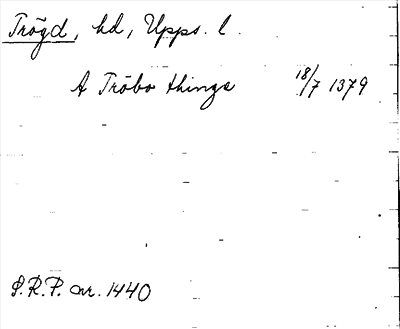 Trögd, hd, Upps. l.
A Tröbo thinge 18/7 1379
S.R.P. nr. 1440